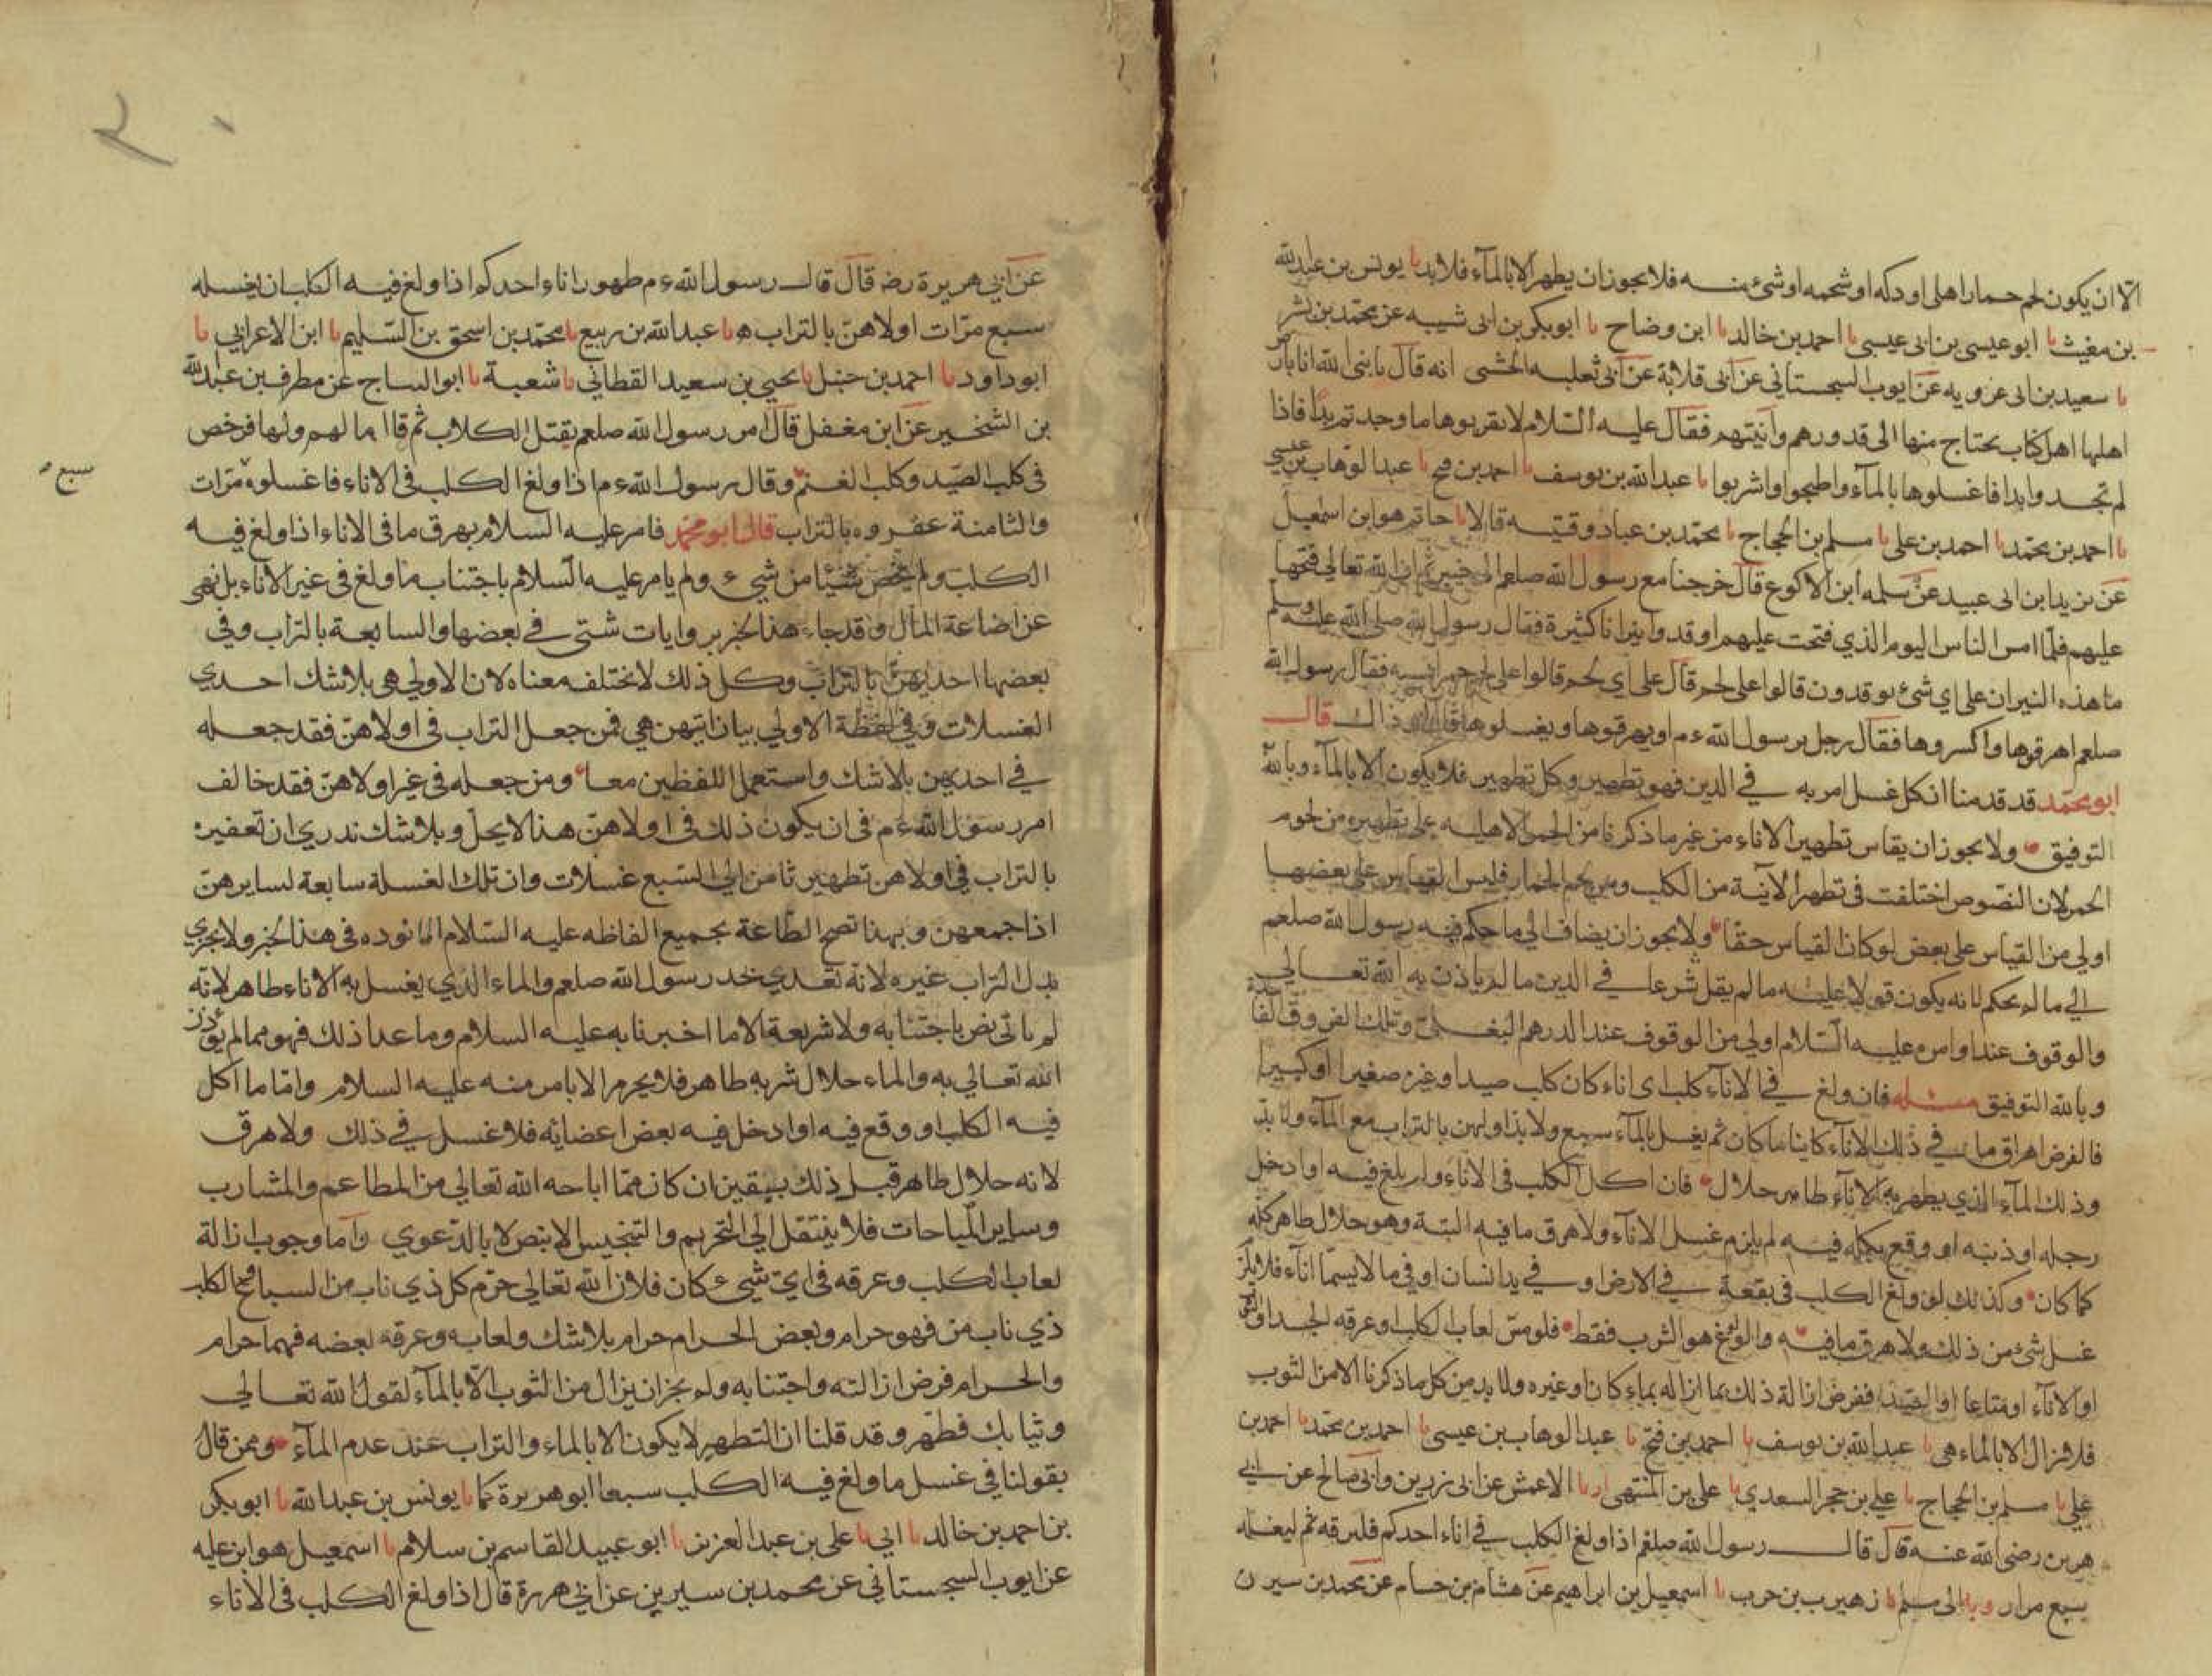 الا ان يكون لحم حمار اهلى او دكه او شحمه او شئ منه فلا يجوز ان يطهر الا بالمآء فلا بد نا يونس بن عبد الله
بن مغيث نا ابو عيسى بن ابى عيسى نا احمد بن خالد نا ابن وضاح نا ابو بكر بن ابى شيبه عن محمد بن بشر
نا سعيد بن ابى عرويه عن ايوب السجستاني عن ابى قلابة عن ابى ثعلبه الخشى انه قال يا نبى الله انا بارض
اهلها اهل كتاب يحتاج منها الى قدورهم وآنيتهم فقال عليه السلام لا تقربوها ما وجد تم بدا فاذا
لم تجدوا بدا فاغسلوها بالمآء واطبخوا واشربوا نا عبد الله بن يوسف نا احمد بن فتح نا عبد الوهاب بن عيسى
نا احمد بن محمد نا احمد بن على نا مسلم بن الحجاج نا محمد بن عباد وقتيبه قالا نا حاتم هو ابن اسمعيل
عن يزيد ابن ابى عبيد عن سلمه ابن الاكوع قال خرجنا مع رسول الله صلعم الى خيبر ثم ان الله تعالى فتحها
عليهم فلما امسى الناس اليوم الذي فتحت عليهم اوقدوا نيرانا كثيرة فقال رسول الله صلى الله عليه وسلم
ما هذه النيران على اي شئ توقدون قالوا على لحم قال على اي لحم قالوا على لحم حمر انسيه فقال رسول الله
صلعم اهرقوها واكسروها فقال رجل يرسول الله ءم او يهرقوها ويغسلوها قال او ذاك قال
ابو محمد قد قدمنا ان كل غسل امر به في الدين فهو تطهير وكل تطهير فلا يكون الا بالمآء وبالله
التوفيق ولا يجوز ان يقاس تطهير الاناء من غير ما ذكرنا من الحمر الاهليه على تطهيره من لحوم
الحمر لان النصوص اختلفت فى تطهر الآنية من الكلب ومن لحم الحمار فليس القياس على بعضها
اولى من القياس على بعض لو كان القياس حقا ولا يجوز ان يضاف الى ما حكم فيه رسول الله صلعم
الي ما لم يحكم لانه يكون قولا عليه ما لم يقل شرعا في الدين ما لم ياذن به الله تعالى
والوقوف عند اوامره عليه السلام اولى من الوقوف عند الدرهم البغلى وتلك الفروق الفاسدة
وبالله التوفيق مسئله فان ولغ في الانآء كلب اى اناء كان كلب صيد او غيره صغيرا او كبيرا
فالفرض اهراق ما في ذلك الانآء كاينا ما كان ثم يغسل بالمآء سبع ولا بد اولهن بالتراب مع المآء ولا بد
وذلك المآء الذي يطهر به الانآء طاهر حلال فان اكل الكلب فى الاناء ولم يلغ فيه او ادخل
رجله او ذنبه او وقع بكله فيه لم يلزم غسل الانآء ولا هرق ما فيه البتة وهو حلال طاهر كله
كما كان وكذلك لو ولغ الكلب فى بقعة في الارض او في يد انسان او في ما لا يسما انآء فلا يلزم
غسل شئ من ذلك ولا هرق ما فيه والولوغ هو الشرب فقط فلو مس لعاب الكلب او عرقه الجسد او الثوب
او الانآء او متاعا او الصيد ففرض ازالة ذلك بما ازاله بماء كان او غيره ولا بد من كل ما ذكرنا الا من الثوب
فلا يزال الا بالماء هى نا عبد الله بن يوسف نا احمد بن فتح نا عبد الوهاب بن عيسى نا احمد بن محمد نا احمد بن
على نا مسلم بن الحجاج نا على بن حجر السعدي نا على بن المنتهى نا الاعمش عن ابى زرين وابى صالح عن ابي
هريره رضى الله عنه قال قال رسول الله صلعم اذا ولغ الكلب في اناء احدكم فليرقه ثم ليغسله
سبع مرار وبه الى مسلم نا زهير بن حرب نا اسمعيل بن ابراهيم عن هشام بن حسام عن محمد بن سيرن
عن ابي هريرة رضه قال قال رسول الله ءم طهور اناء احدكم اذا ولغ فيه الكلب ان يغسله
سبع مرّات اولاهن بالتراب ه نا عبد الله بن ربيع نا محمد بن اسحق بن السّليم نا ابن الاعرابي نا
ابو داود نا احمد بن حنبل نا يحيي بن سعيد القطاني نا شعبة نا ابو الساج عن مطرف بن عبد الله
بن الشخير عن ابن مغفل قال امر رسول الله صلعم بقتل الكلاب ثم قال ما لهم ولها فرخص
فى كلب الصّيد وكلب الغنم وقال رسول الله ءم اذا ولغ الكلب فى الاناء فاغسلوه مّرات
سبع
والثامنة عفروه بالتراب قال ابو محمد فامر عليه السلام بهرق ما فى الاناء اذا ولغ فيه
الكلب ولم يخص شيئا من شيىء ولم يامر عليه السلام باجتناب ما ولغ فى غير الاناء بل نهى
عن اضاعة المال وقد جاء هذا الخبر بروايات شتى في بعضها والسابعة بالتراب وفي
بعضها احديهن بالتراب وكل ذلك لا تختلف معناه لان الاولي هى بلا شك احدي
الغسلات وفي لفظة الاولي بيان ايتهن هي فمن جعل التراب فى اولاهن فقد جعله
في احديهن بلا شك واستعمل اللفظين معا ومن جعله فى غير اولاهن فقد خالف
امر رسول الله ءم فى ان يكون ذلك فى اولاهن هذا لا يحل وبلا شك ندري ان تعفيره
بالتراب في اولاهن تطهير ثامن الي السبع غسلات وان تلك الغسلة سابعة لسايرهن
اذا جمعهن وبهذا تصح الطاعة بجميع الفاظه عليه السلام المانوده فى هذا الخبر ولا يجزي
بدل التراب غيره لانه تعدي حد رسول الله صلعم والماء الذي يغسل به الاناء طاهر لانه
لم ياتى نص باجتنابه ولا شريعة الا ما اخبرنا به عليه السلام وما عدا ذلك فهو مما لم يؤذن
الله تعالي به والماء حلال شربه طاهر فلا يحرم الا بامر منه عليه السلام واما ما اكل
فيه الكلب او وقع فيه او ادخل فيه بعض اعضائه فلا غسل في ذلك ولا هرق
لانه حلال طاهر قبل ذلك بيقين ان كان ممّا اباحه الله تعالي من المطاعم والمشارب
وساير المباحات فلا ينتقل الي التحريم والتنجيس الا بنص لا بالدعوي واما وجوب ازالة
لعاب الكلب وعرقه فى اي شيىء كان فلان الله تعالي حرّم كل ذي ناب من السباع والكلب
ذي ناب من فهو حرام وبعض الحرام حرام بلا شك ولعابه وعرقه بعضه فهما حرام
والحرام فرض ازالته واجتنابه ولم يجز ان يزال من الثوب الا بالمآء لقول الله تعالي
وثيابك فطهر وقد قلنا ان التطهير لا يكون الا بالماء والتراب عند عدم المآء وممن قال
بقولنا في غسل ما ولغ فيه الكلب سبعا ابو هريرة كما نا يونس بن عبد الله نا ابو بكر
بن احمد بن خالد نا ابي نا على بن عبد العزيز نا ابو عبيد القاسم بن سلام نا اسمعيل هو ابن عليه
عن ايوب السجستاني عن محمد بن سيرين عن ابي هريرة قال اذا ولغ الكلب فى الاناء